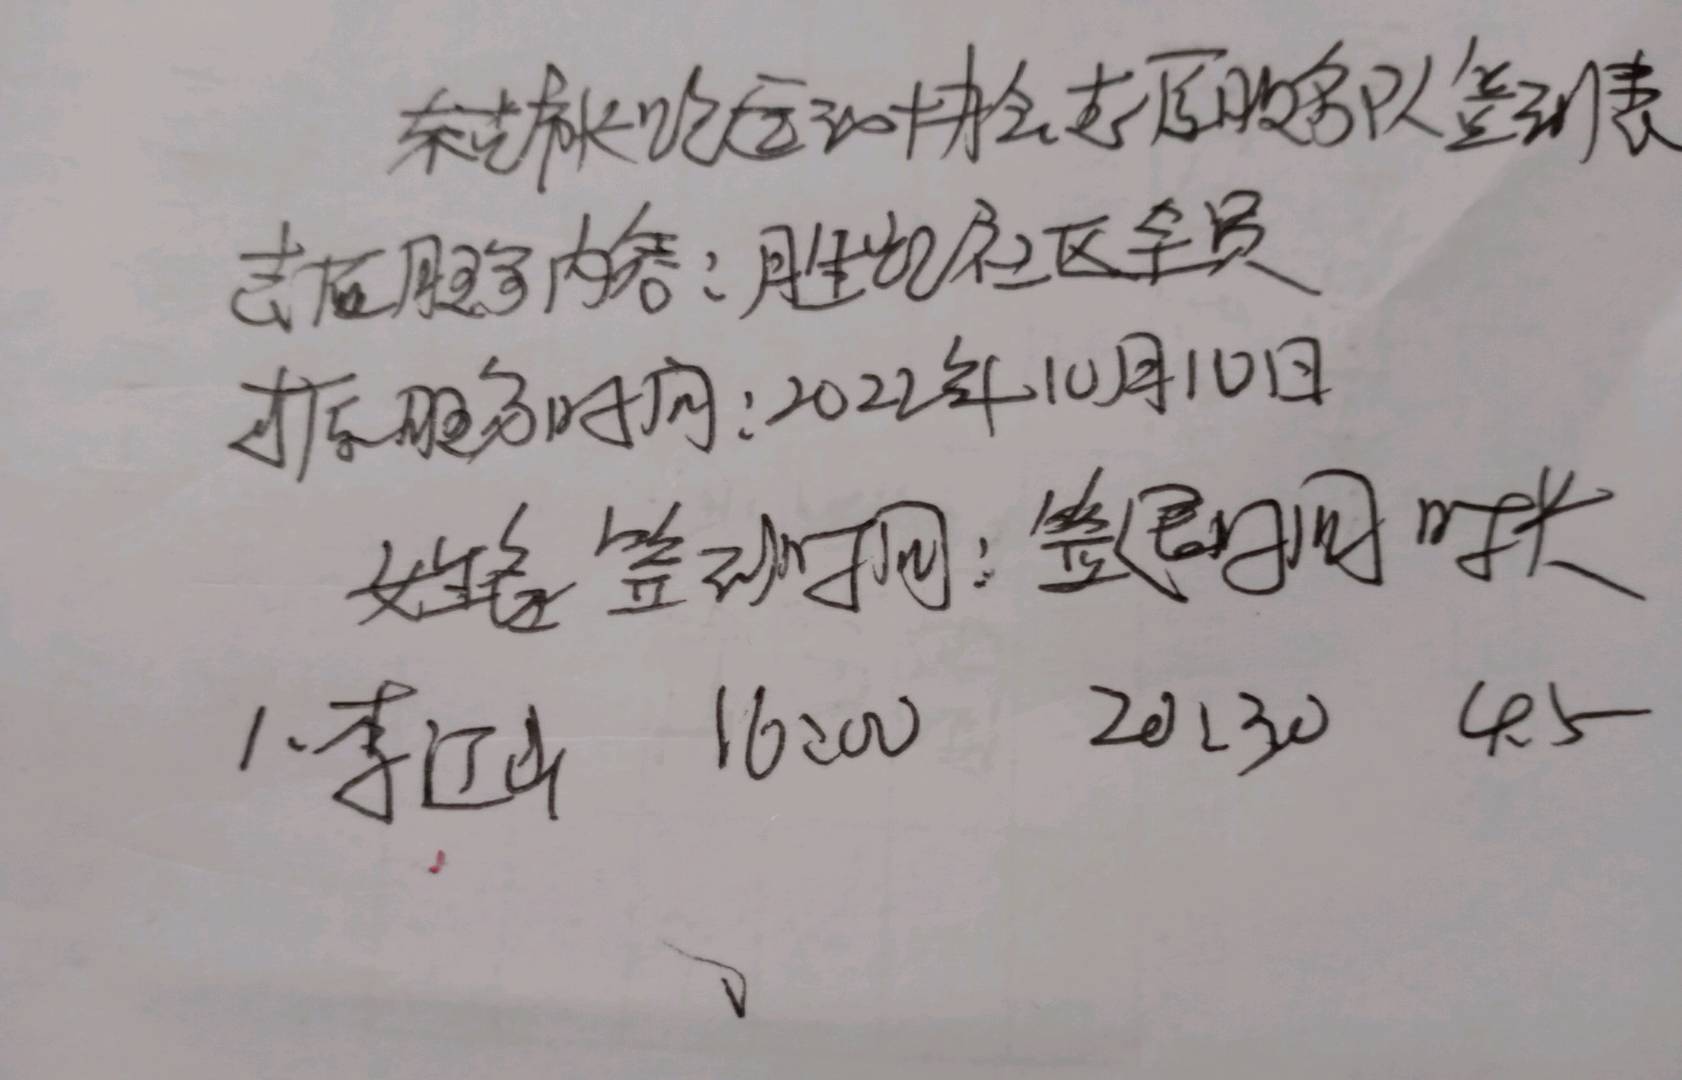 东莞市长跑运动协会志愿服务队签到表
志愿服务内容:胜和社区全员
志愿服务时间:2022年10月10日
姓名 签到时间: 签退时间 时长
1.李江山 16:00 20:30 4.5